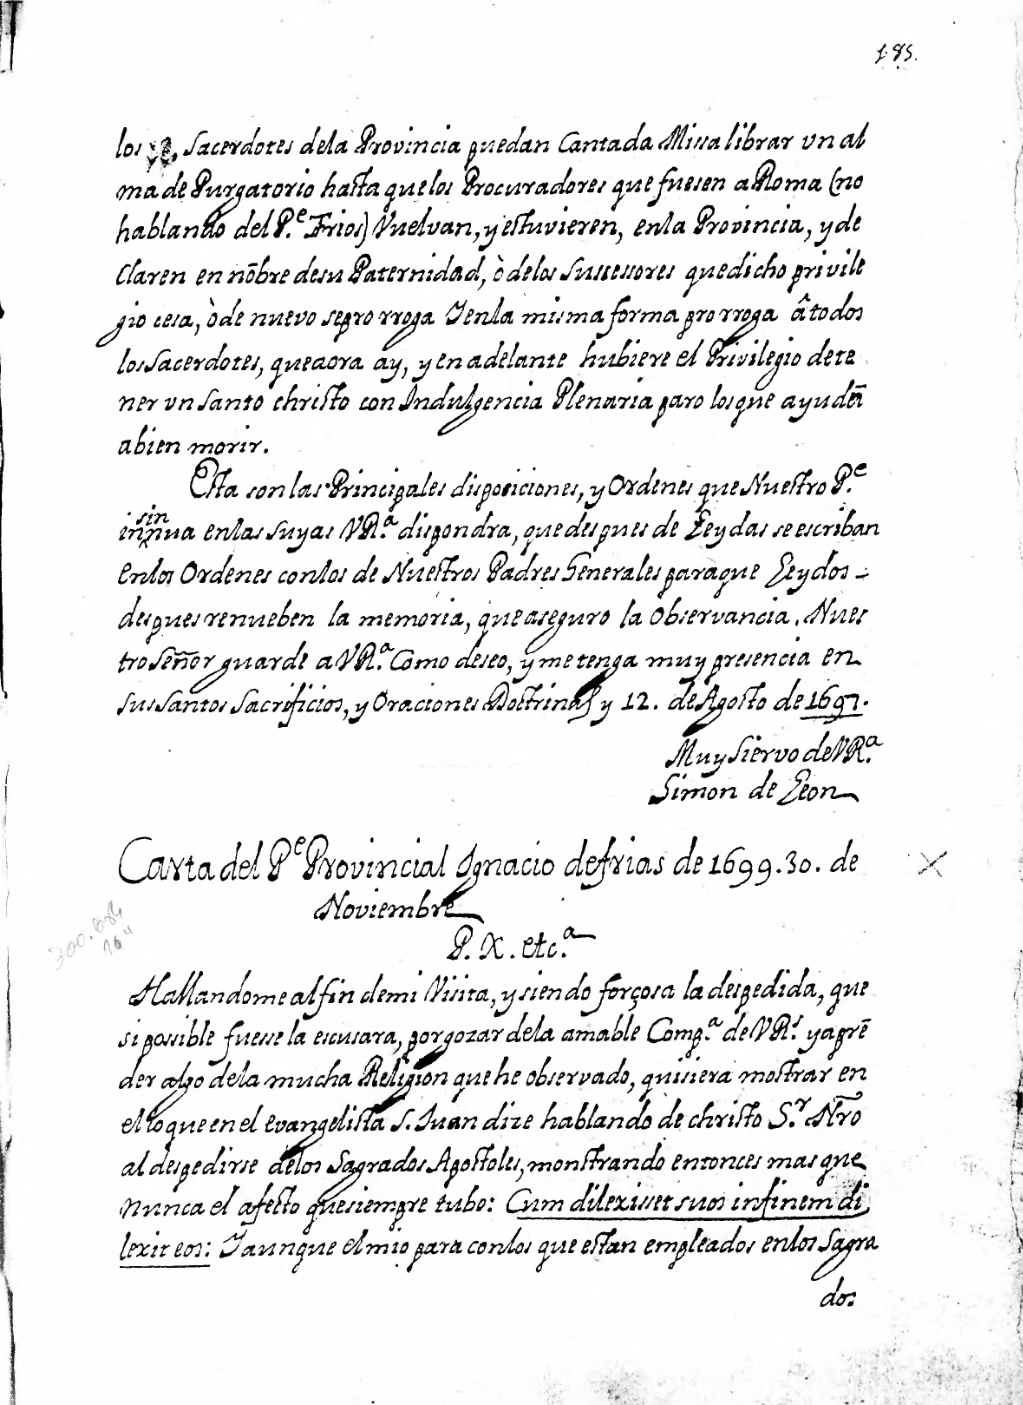 185.
los PP. Sacerdotes dela Provincia puedan Cantada Missa librar vn al
ma de Purgatorio hasta que los Procuradores que fuesen a Roma (no
hablando del P.e Frios) Vuelvan, y estuvieren, enla Provincia, y de
Claren en nōbre desu Paternidad, ò delos sucessores quedicho privile
gio cesa, ò de nuevo se prorroga Yenla misma forma prorroga â todos
los Sacerdotes, queaora ay, y en adelante hubiere el Privilegio dete
ner vn santo christo con Indulgencia Plenaria paro los que ayudē
abien morir.
Esta son las Principales disposiciones, y Ordenes que Nuestro P.e
insinnua enlas suyas VR.a dispondra, que despues de Leydas se escriban
enlos Ordenes conlos de Nuestros Padres Generales paraque Leydos
despues renueben la memoria, que aseguro la Observancia. Nues
tro Señor guarde a VR.a Como deseo, y me tenga muy presencia en
sus santos sacrificios, y Oraciones Doctrinas y 12. de Agosto de 1697.
Muy Siervo de VR.a
Simon de Leon
Carta del P.e Provincial Ignacio defrias de 1699. 30. de
Noviembre
300.686
164
P. X. etc.a
Hallandome al fin demi Visita, y siendo forçosa la despedida, que
si possible fuesse la escusara, por gozar dela amable Comp.a de VR.s y aprē
der algo dela mucha Religion que he observado, quisiera mostrar en
el lo que en el evangelista S. Juan dize hablando de christo S.r Nr̄o
al despedirse delos Sagrados Apostoles, monstrando entonces mas que
Nunca el afecto que siempre tubo: Cum dilexisset suos infinem di
lexit eos: Yaunque el mio para conlos que estan empleados enlos Sagra
dos